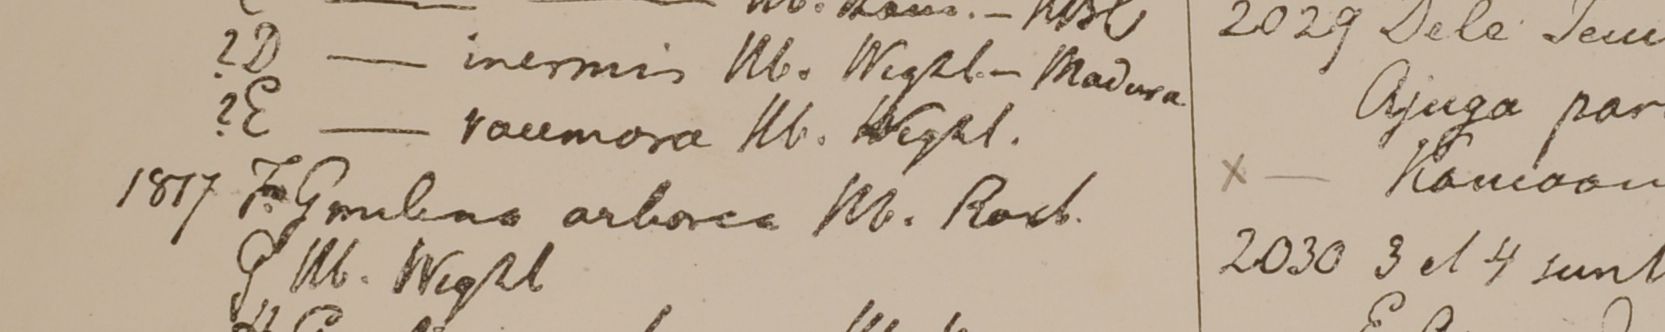 C — — Hb. Ham. — HBC
?D — inermis Hb. Wight — Madura
?E — racemosa Hb. Wight.
1817 F. Gmelina arborea Hb. Roxb.
G Hb. Wight
2029 Dele
Ajuga par
x — Kamaon
2030 3 et 4 sunt